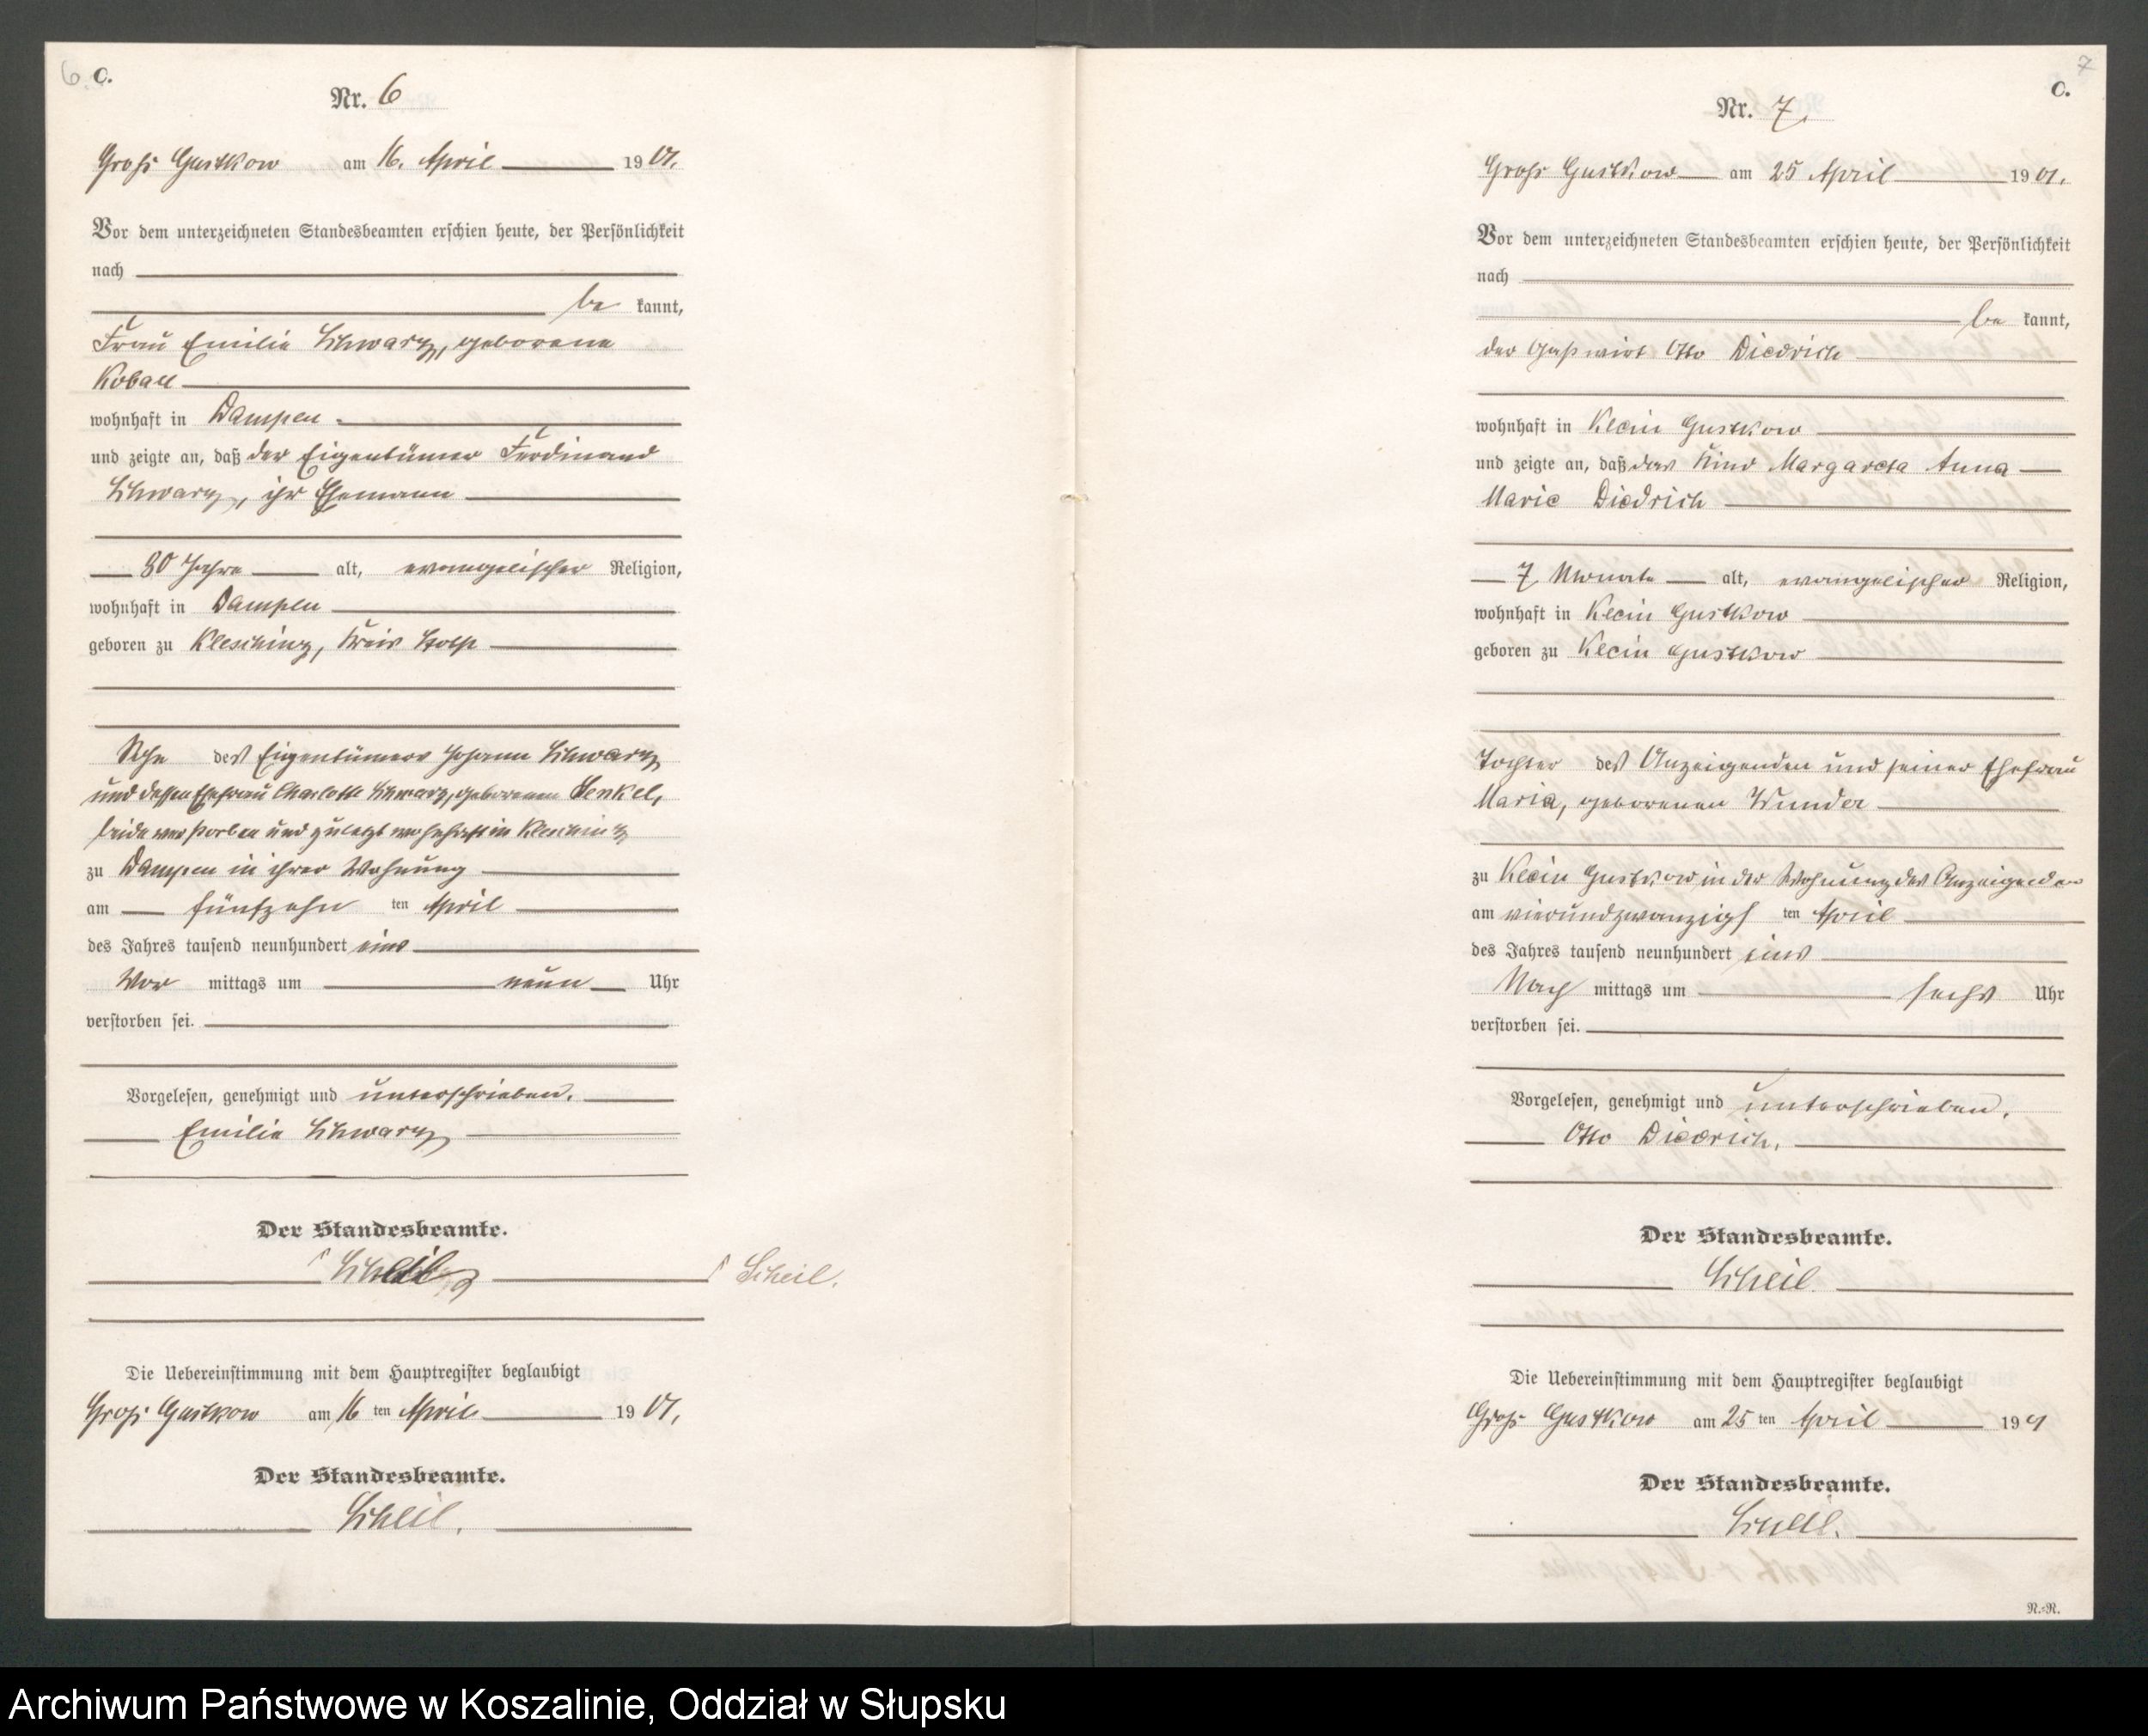 6. C.
Nr. 6
Groß Gustkow am 16. April 1901.
Vor dem unterzeichneten Standesbeamten erschien heute, der Persönlichkeit
nach
be kannt,
Frau Emilie Schwarz, geborene
Koball
wohnhaft in Dampen
und zeigte an, daß der Eigentümer Ferdinand
Schwarz, ihr Ehemann
80 Jahre alt, evangelischer Religion,
wohnhaft in Dampen
geboren zu Kleschinz, Kreis Stolp
Sohn des Eigentümers Johann Schwarz
und dessen Ehefrau Charlotte Schwarz, geborenen Henkel,
beide verstorben und zuletzt wohnhaft in Kleschinz
zu Dampen in ihrer Wohnung
am fünfzehn ten April
des Jahres tausend neunhundert eins
Vor mittags um neun Uhr
verstorben sei.
Vorgelesen, genehmigt und unterschrieben.
Emilie Schwarz
Der Standesbeamte.
Scheil
Scheil.
Die Uebereinstimmung mit dem Hauptregister beglaubigt
Groß Gustkow am 16 ten April 1901.
Der Standesbeamte.
Scheil.
7
C.
Nr. 7.
Groß Gustkow am 25 April 1901.
Vor dem unterzeichneten Standesbeamten erschien heute, der Persönlichkeit
nach
be kannt,
der Gastwirt Otto Diedrich
wohnhaft in Klein Gustkow
und zeigte an, daß das Kind Margareta Anna
Marie Diedrich
7 Monate alt, evangelischer Religion,
wohnhaft in Klein Gustkow
geboren zu Klein Gustkow
Tochter des Anzeigenden und seiner Ehefrau
Maria, geborenen Wunder
zu Klein Gustkow in der Wohnung des Anzeigenden
am vierundzwanzigs ten April
des Jahres tausend neunhundert eins
Nach mittags um sechs Uhr
verstorben sei.
Vorgelesen, genehmigt und unterschrieben.
Otto Diedrich.
Der Standesbeamte.
Scheil.
Die Uebereinstimmung mit dem Hauptregister beglaubigt
Groß Gustkow am 25 ten April 1901
Der Standesbeamte.
Scheil.
R.=R.
Archiwum Państwowe w Koszalinie, Oddział w Słupsku